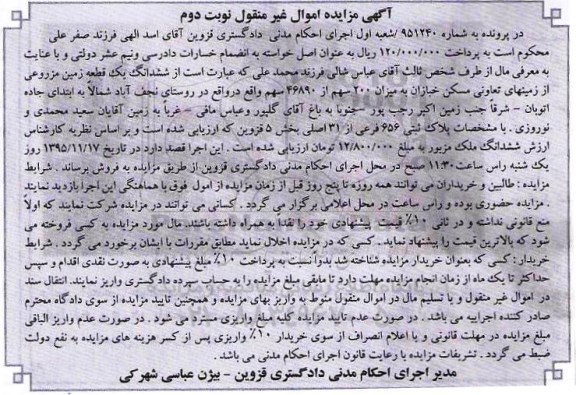 آگهی مزایده اموال غیر منقول نوبت دوم
در پرونده به شماره ۹۵۱۲۴۰ /شعبه اول اجرای احکام مدنی دادگستری قزوین آقای اسد الهی فرزند صفر علی
محکوم است به پرداخت ۱۲۰/۰۰۰/۰۰۰ ریال به عنوان اصل خواسته به انضمام خسارات دادرسی ونیم عشر دولتی و با عنایت
به معرفی مال از طرف شخص ثالث آقای عباس شالی فرزند محمد علی که عبارت است از ششدانگ یک قطعه زمین مزروعی
از زمینهای تعاونی مسکن خبازان به میزان ۲۰۰ سهم از ۴۶۸۹۰ سهم واقع درواقع در روستای نجف آباد شمالاً به ابتدای جاده
اتوبان - شرقاً جنب زمین اکبر رجب پور - جنوباً به باغ آقای گلپور وعباس مافی - غرباً به زمین آقایان سعید محمدی و
نوروزی . با مشخصات پلاک ثبتی ۶۵۶ فرعی از ۳۱ اصلی بخش ۵ قزوین که ارزیابی شده است و بر اساس نظریه کارشناس
ارزش ششدانگ ملک مزبور به مبلغ ۱۲/۸۰۰/۰۰۰ تومان ارزیابی شده است . این اجرا قصد دارد در تاریخ ۱۳۹۵/۱۱/۱۷ روز
یک شنبه راس ساعت ۱۱:۳۰ صبح در محل اجرای احکام مدنی دادگستری قزوین از طریق مزایده به فروش برساند . شرایط
مزایده : طالبین و خریداران می توانند همه روزه تا پنج روز قبل از زمان مزایده از امول فوق با هماهنگی این اجرا بازدید نمایند
. مزایده حضوری بوده و راس ساعت در محل اعلامی برگزار می گردد . کسانی می توانند در مزایده شرکت نمایند که اولاً
منع قانونی نداشته و در ثانی ۱۰٪ قیمت پیشنهادی خود را نقداً به همراه داشته باشند. مال مورد مزایده به کسی فروخته می
شود که بالاترین قیمت را پیشنهاد نماید. کسی که در مزایده اخلال نماید مطابق مقررات با ایشان برخورد می گردد . شرایط
خریدار : کسی که بعنوان خریدار مزایده شناخته شد بدواً نسبت به پرداخت ۱۰٪ مبلغ پیشنهادی به صورت نقدی اقدام و سپس
حداکثر تا یک ماه از زمان انجام مزایده مهلت دارد تا مابقی مبلغ مزایده را به حساب سپرده دادگستری واریز نمایند. انتقال سند
در اموال غیر منقول و یا تسلیم مال در اموال منقول منوط به واریز بهای مزایده و همچنین تایید مزایده از سوی دادگاه محترم
صادر کننده اجراییه می باشد . در صورت عدم تایید مزایده کلیه مبلغ واریزی مسترد می شود . در صورت عدم واریز الباقی
مبلغ مزایده در مهلت قانونی و یا اعلام انصراف از سوی خریدار ۱۰٪ واریزی پس از کسر هزینه های مزایده به نفع دولت
ضبط می گردد . تشریفات مزایده با رعایت قانون اجرای احکام مدنی می باشد .
مدیر اجرای احکام مدنی دادگستری قزوین - بیژن عباسی شهرکی